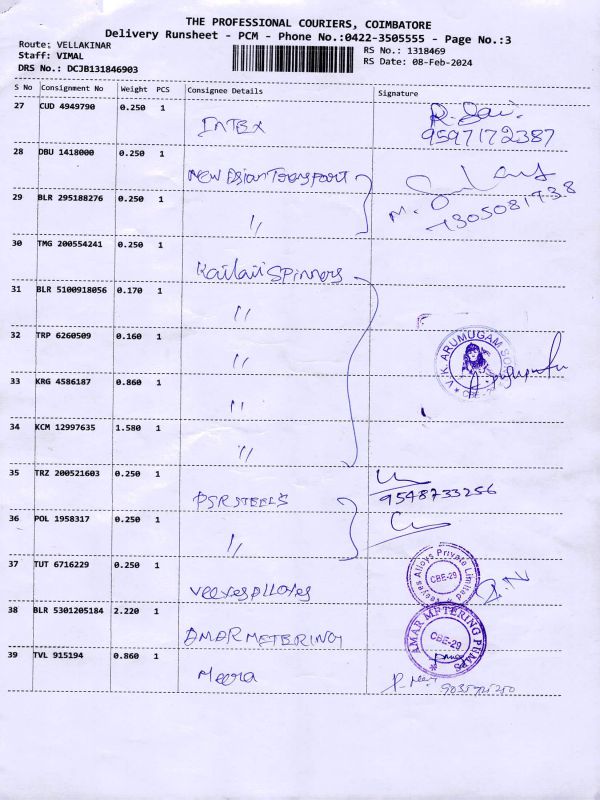 THE PROFESSIONAL COURIERS, COIMBATORE
Delivery Runsheet - PCM - Phone No.:0422-3505555 - Page No.:3
Route: VELLAKINAR
Staff: VIMAL
DRS No.: DCJB131846903
RS No.: 1318469
RS Date: 08-Feb-2024
S No Consignment No Weight PCS Consignee Details Signature
27 CUD 4949790 0.250 1 INTEX R. Sai. 9597172387
28 DBU 1418000 0.250 1 New Asian Transport
29 BLR 295188276 0.250 1 〃 M. 7305081738
30 TMG 200554241 0.250 1 Kailaii SPinners
31 BLR 5100918056 0.170 1 〃
32 TRP 6260509 0.160 1 〃 V.K. ARUMUGAM SO
33 KRG 4586187 0.860 1 〃 CBE-29
34 KCM 12997635 1.580 1 〃
35 TRZ 200521603 0.250 1 PSR STEELS 9548733256
36 POL 1958317 0.250 1 〃
37 TUT 6716229 0.250 1 Veeyes Alloyes Veeyes Alloys Private Limited CBE-29
38 BLR 5301205184 2.220 1 AMAR METERING AMAR METERING PUMPS CBE-29
39 TVL 915194 0.860 1 Meera